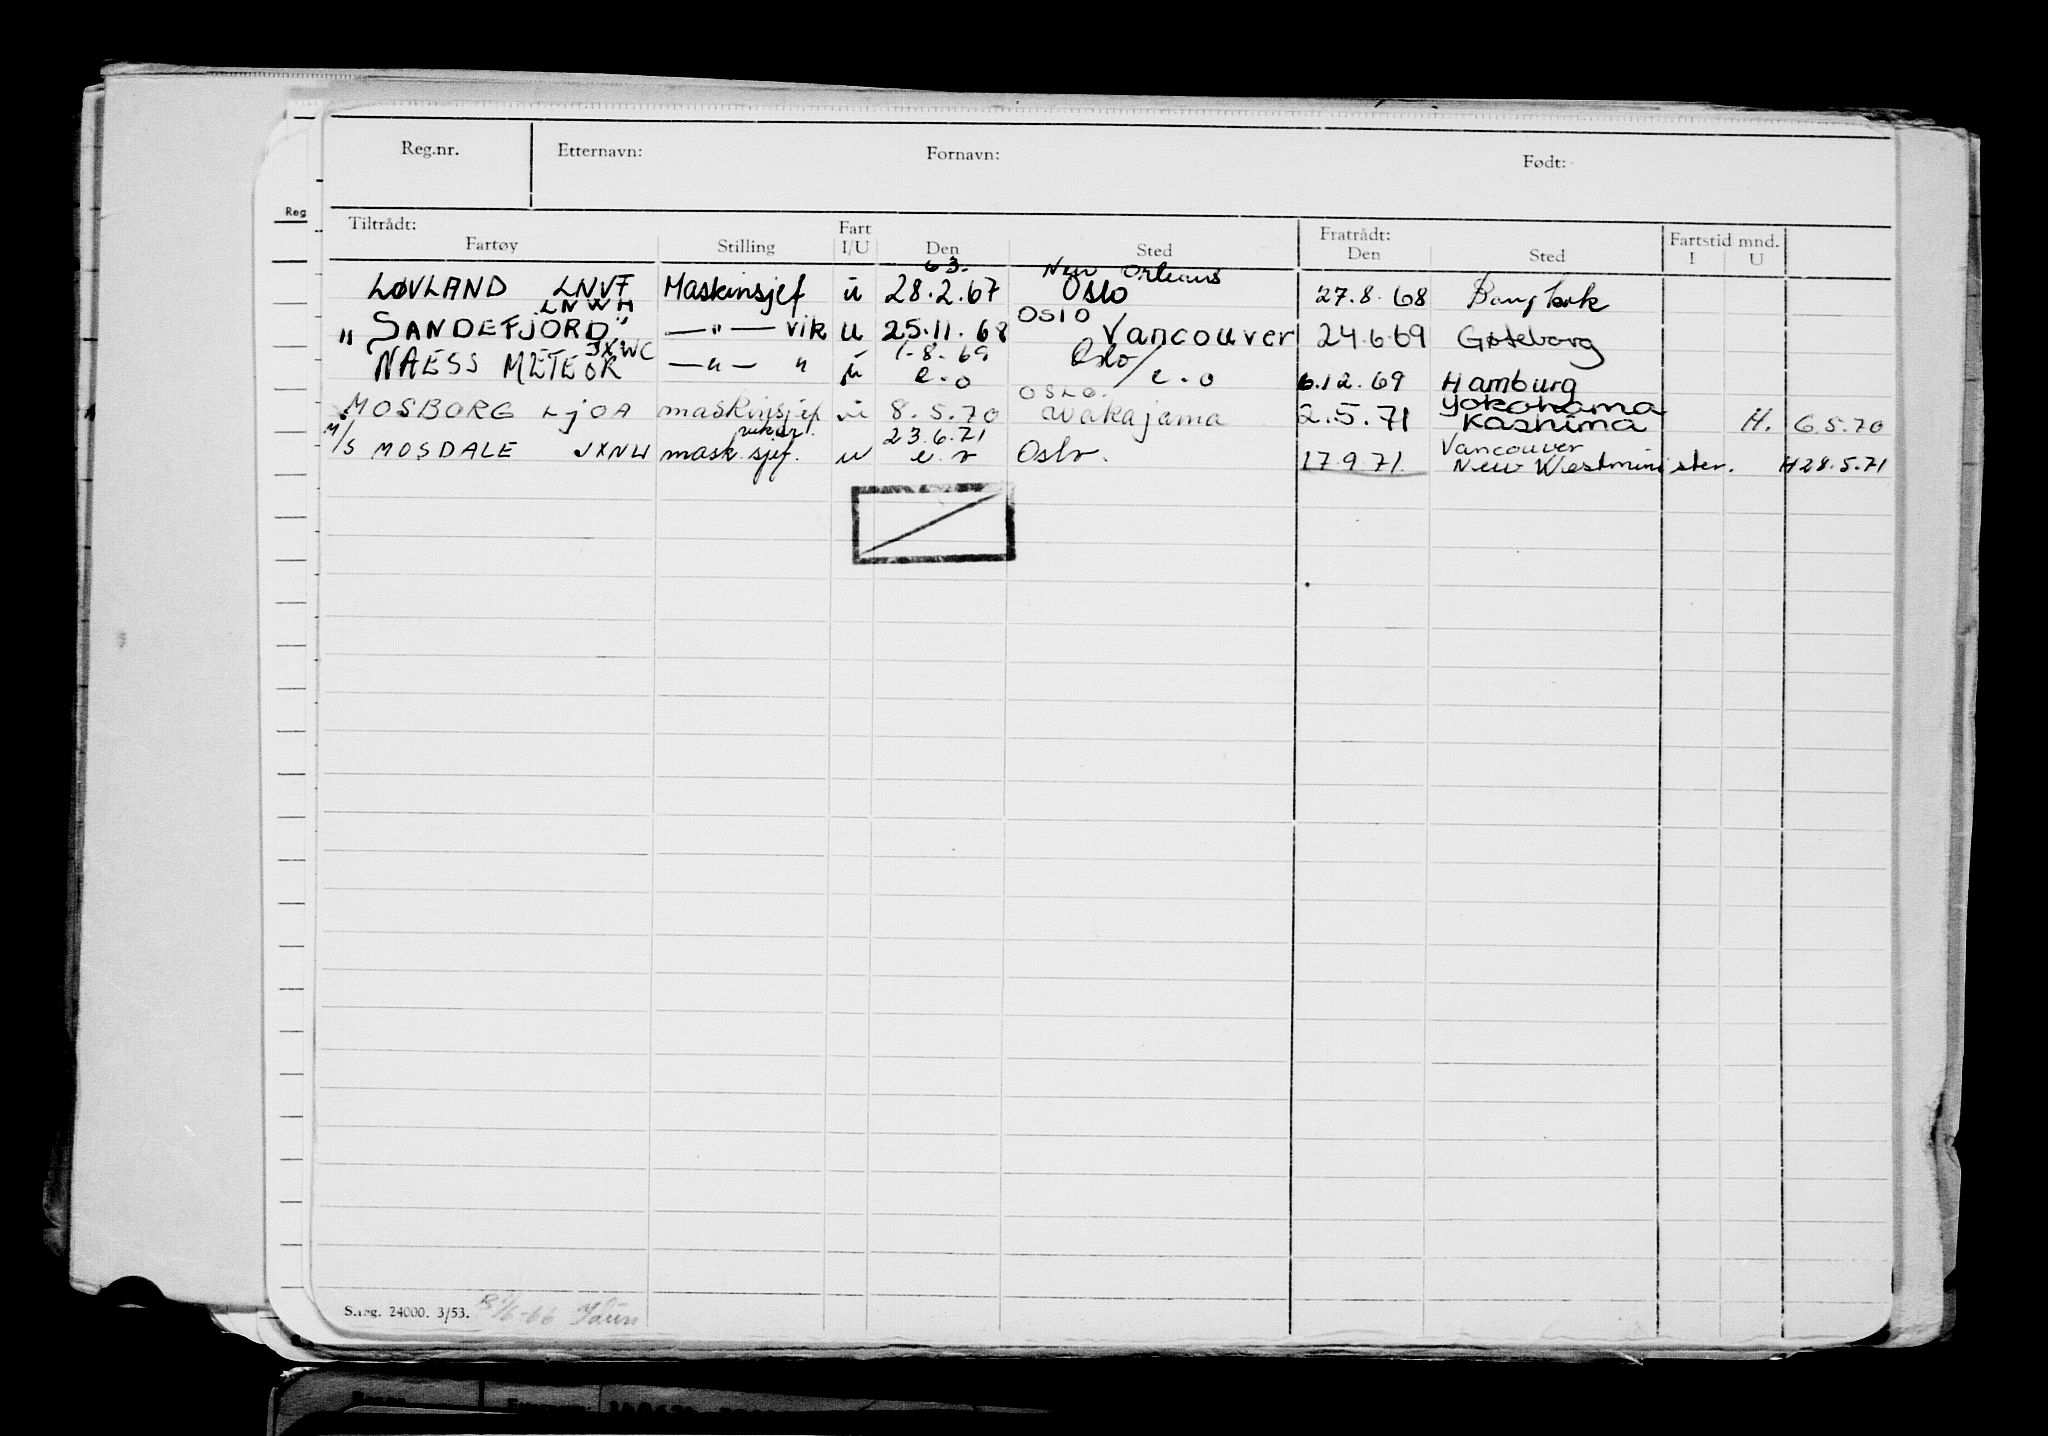 Reg.nr. Etternavn: Fornavn: Født:
Reg
Tiltrådt: Fart Fratrådt: Fartstid mnd.
Fartøy Stilling I/U Den Sted Den Sted I U
63. New Orleans
LØVLAND LNVF Maskinsjef u 28.2.67 Oslo 27.8.68 Bangkok
LNWH OSLO
"SANDEFJORD" —"— vik u 25.11.68 Vancouver 24.6.69 Gøteborg
JXWC 1.8.69 Oslo/
NAESS METEOR —"— " u e.o e.o 6.12.69 Hamburg
OSLO. Yokohama
MOSBORG LJOA maskinsjef u 8.5.70 Wakajama 2.5.71 Kashima H. 6.5.70
vikar. 23.6.71 Vancouver
M/S MOSDALE JXNW mask.sjef. u Oslo. 17.9.71. New Westminister. H 28.5.71
S.reg. 24000. 3/53.